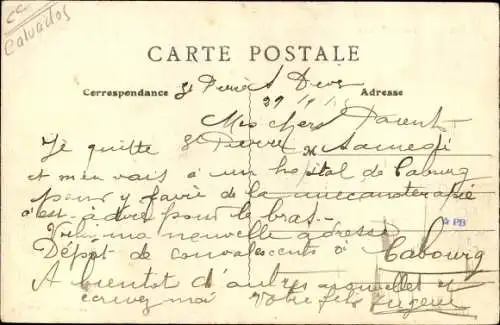 Calvados
CARTE POSTALE
Correspondance
Adresse
St Pierre s Dives
Mes chers Parents
Je quitte St Pierre Samedi
et m'en vais à un hopital de Cabourg
pour y faire de la mecanoterapie
c'est-à-dire pour le bras.-
Voici ma nouvelle adresse
Dépôt de convalescents à Cabourg
A bientot d'autres nouvelles et
ecrivez moi Votre fils Eugene
PB